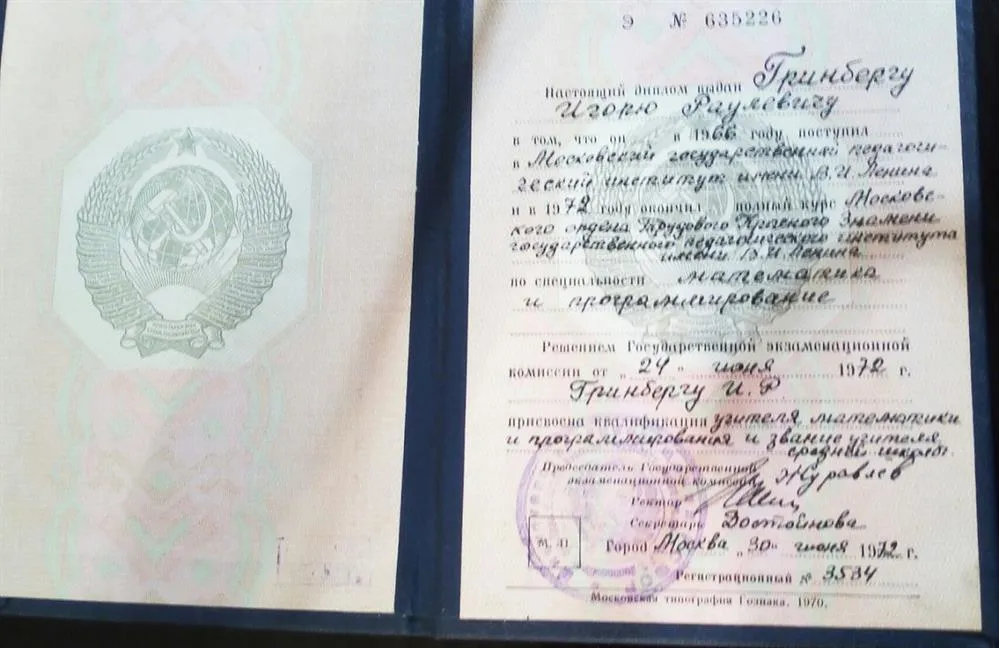 Э № 635226
Настоящий диплом выдан Гринбергу
Игорю Раулевичу
в том, что он в 1966 году поступил
в Московский государственный педагоги-
ческий институт имени В.И. Ленина
и в 1972 году окончил полный курс Московс-
кого ордена Трудового Красного Знамени
государственного педагогического института
имени В.И. Ленина
по специальности математика
и программирование
Решением Государственной экзаменационной
комиссии от „24“ июня 1972 г.
Гринбергу И.Р.
присвоена квалификация учителя математики
и программирования и звание учителя
средней школы.
Председатель Государственной
экзаменационной комиссии Журавлев
Ректор
Секретарь Достойнова
М. П.
Город Москва „30“ июня 1972 г.
Регистрационный № 3534
Московская типография Гознака. 1970.